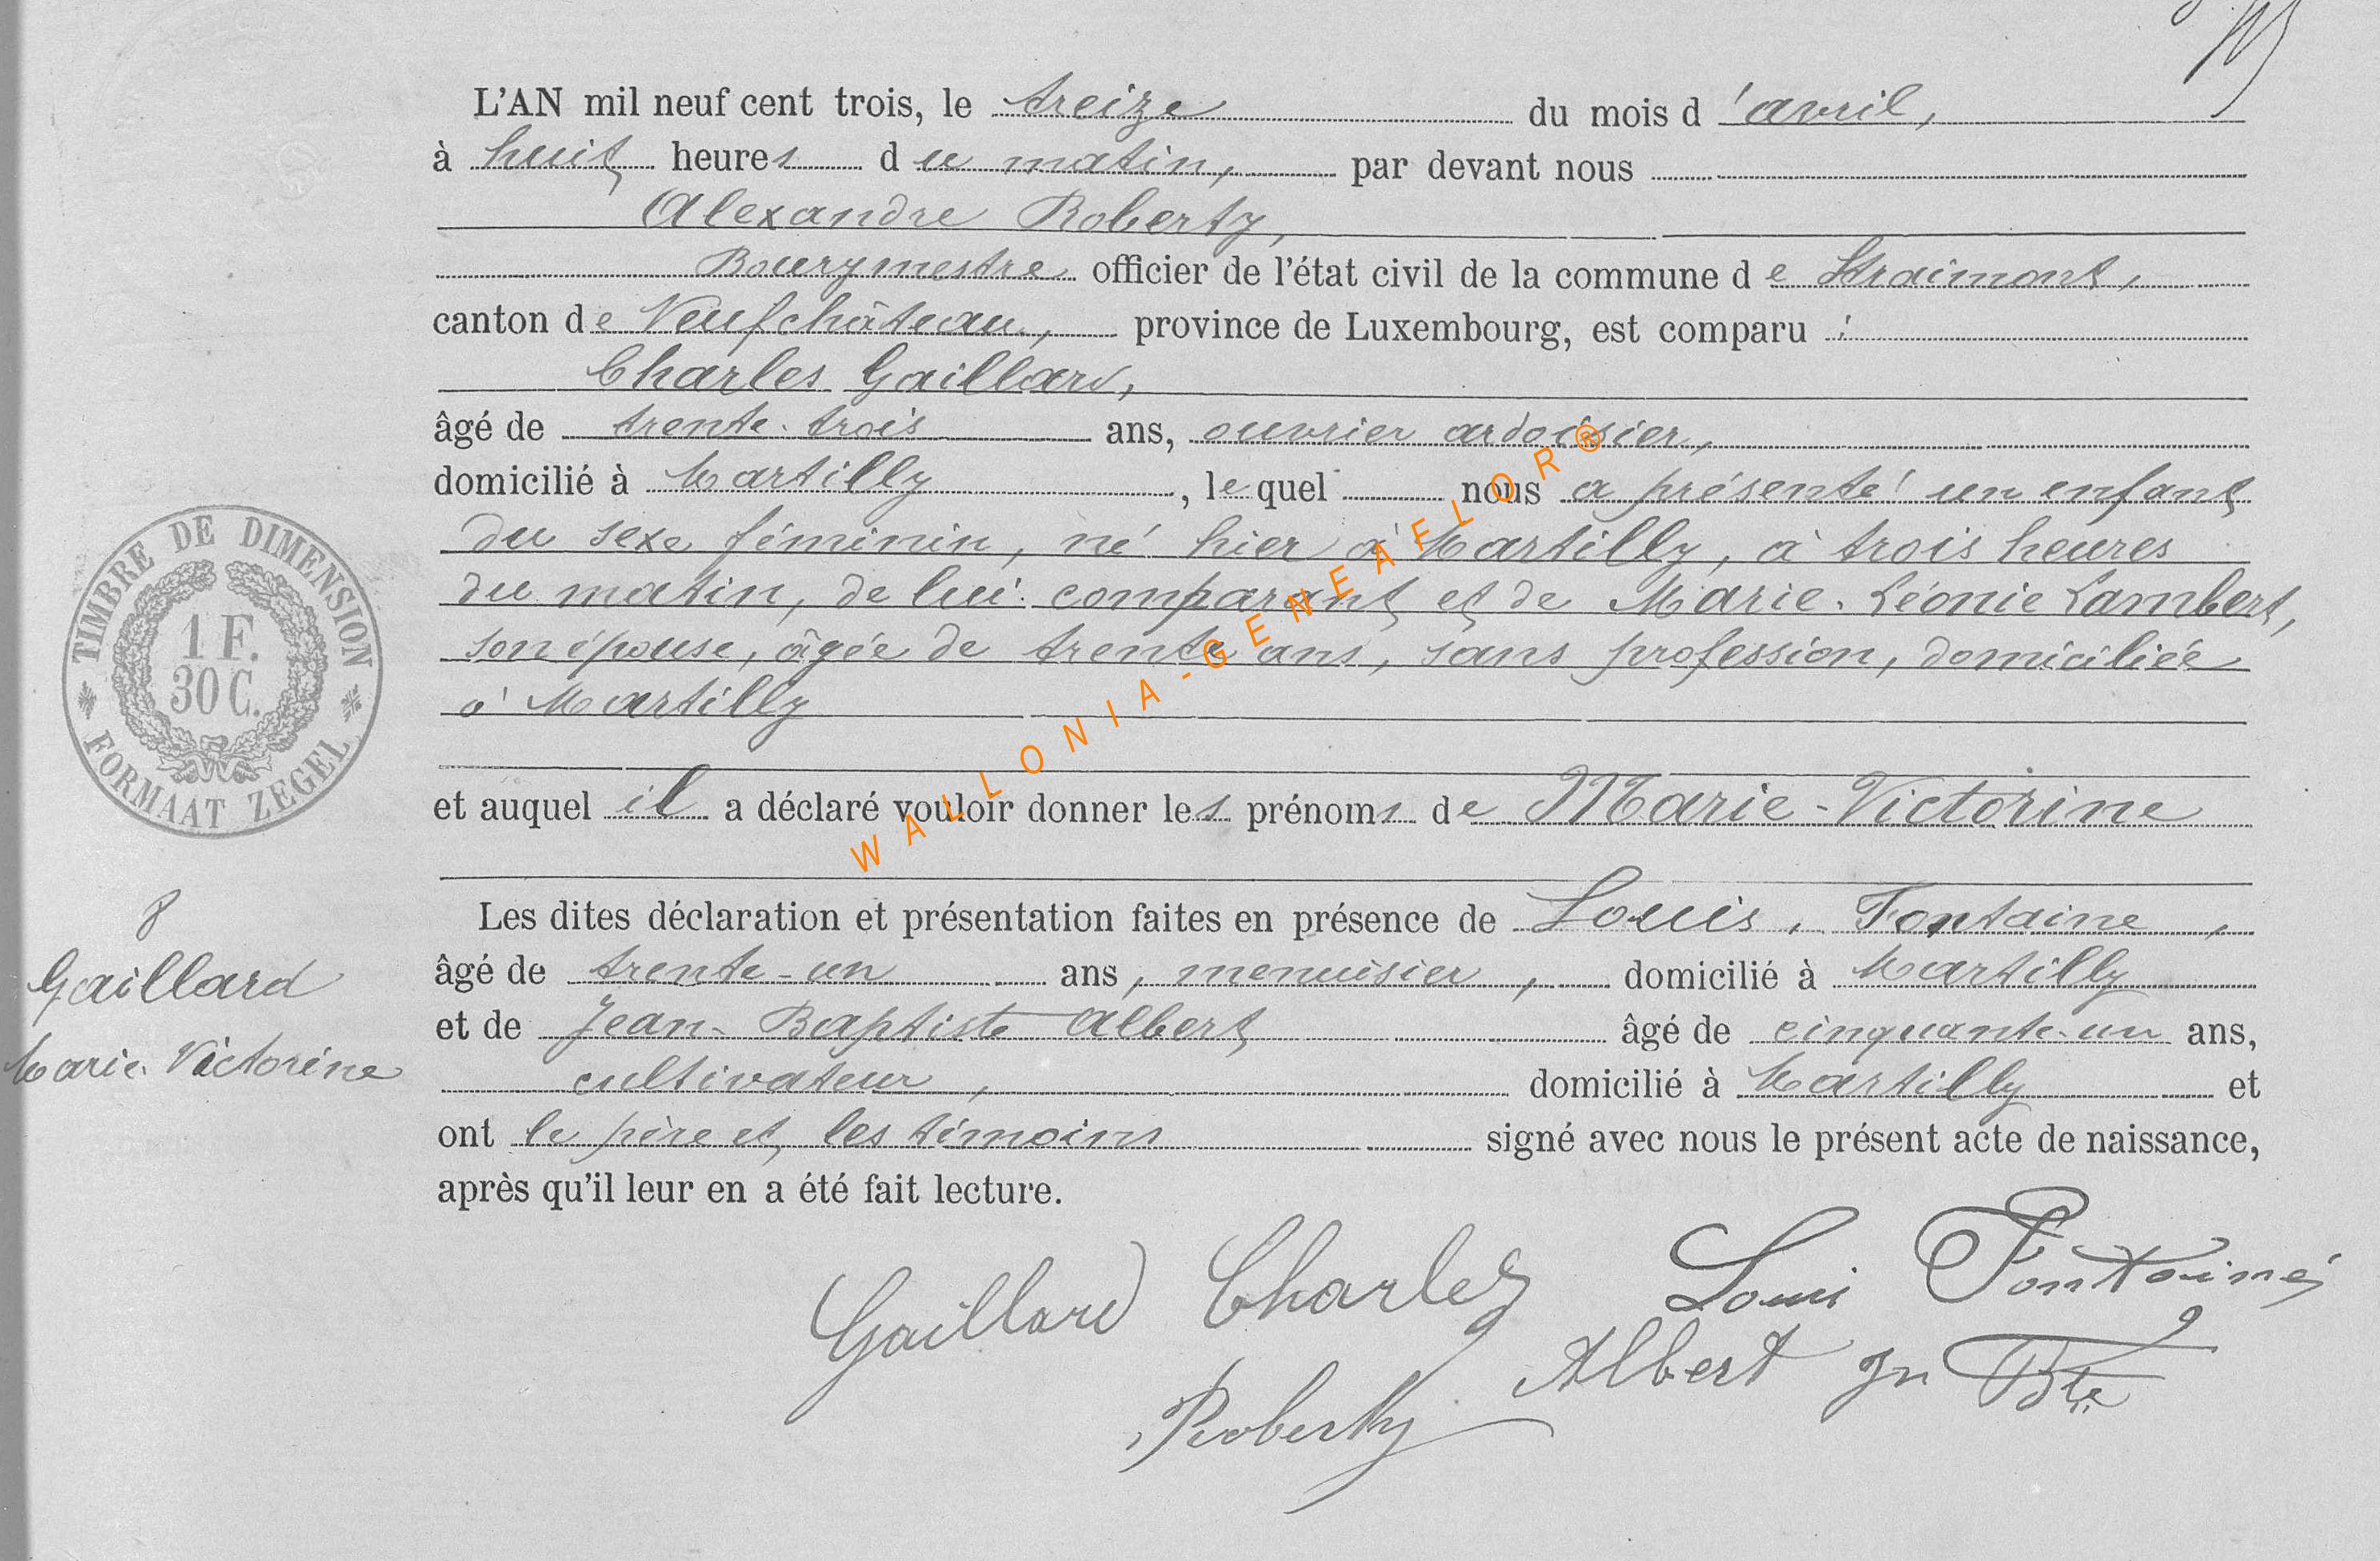 L'AN mil neuf cent trois, le treize du mois d'avril,
à huit heures du matin, par devant nous
Alexandre Roberty,
Bourgmestre officier de l'état civil de la commune de Straimont,
canton de Neufchâteau, province de Luxembourg, est comparu :
Charles Gaillard,
âgé de trente-trois ans, ouvrier ardoisier,
domicilié à Martilly, lequel nous a présenté un enfant
du sexe féminin, né hier à Martilly, à trois heures
du matin, de lui comparant et de Marie-Léonie Lambert,
son épouse, âgée de trente ans, sans profession, domiciliée
à Martilly
et auquel il a déclaré vouloir donner les prénoms de Marie-Victorine
Les dites déclaration et présentation faites en présence de Louis, Fontaine,
âgé de trente-un ans, menuisier, domicilié à Martilly
et de Jean-Baptiste Albert âgé de cinquante-un ans,
cultivateur, domicilié à Martilly et
ont le père et les témoins signé avec nous le présent acte de naissance,
après qu'il leur en a été fait lecture.
TIMBRE DE DIMENSION
1 F.
30 C.
FORMAAT ZEGEL
8
Gaillard
Marie-Victorine
Gaillard Charles Louis Fontaine
Albert Jn Bte
Roberty
WALLONIA-GENEAFLOR®